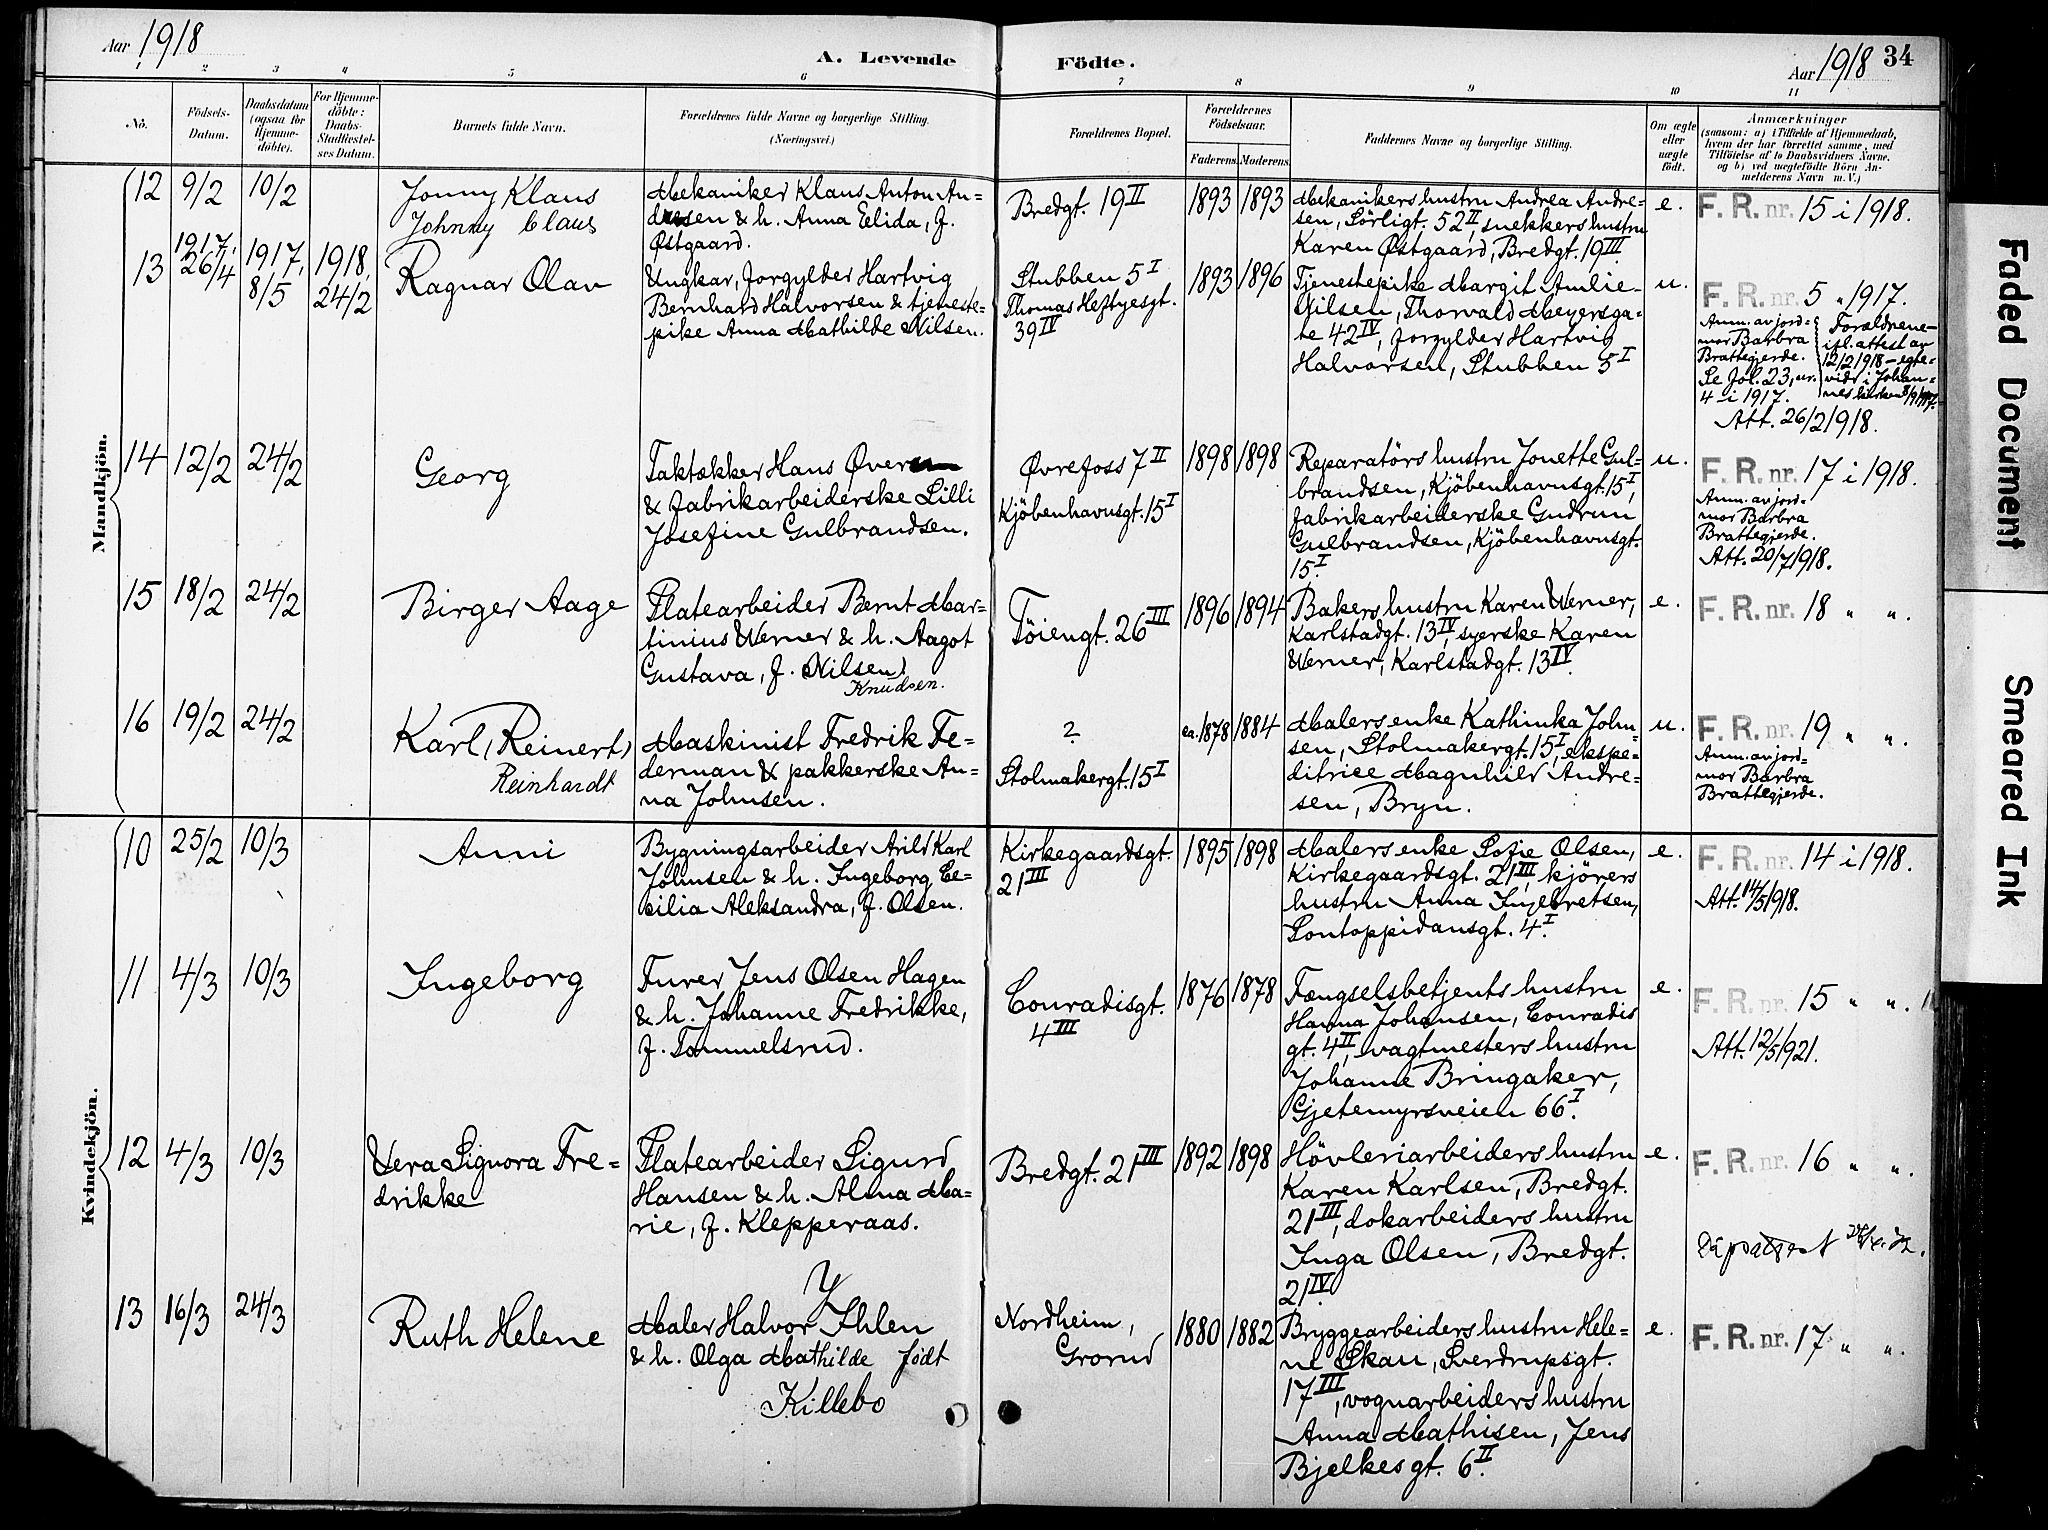 Aar 1918
A. Levende Födte.
Aar 1918 34
1 2 3 4 5 6 7 8 9 10 11
No.
Födsels-
Datum.
Daabsdatum
(ogsaa for
Hjemme-
döbte).
For Hjemme-
döbte:
Daabs-
Stadfæstel-
ses Datum.
Barnets fulde Navn.
Forældrenes fulde Navne og borgerlige Stilling.
(Næringsvei.)
Forældrenes Bopæl.
Forældrenes
Födselsaar.
Faderens. Moderens.
Faddernes Navne og borgerlige Stilling.
Om ægte
eller
uægte
født.
Anmærkninger
(saasom: a) i Tilfælde af Hjemmedaab,
hvem der har forrettet samme, med
Tilföielse af to Daabsvidners Navne,
og b) ved uægtefödte Börn An-
melderens Navn m.V.)
Mandkjön.
12 9/2 10/2
Jonny Klaus
Johnny Claus
Mekaniker Klaus Anton An-
dresen & h. Anna Elida, f.
Østgaard.
Bredgt. 19 II
1893 1893
Mekanikers hustru Andrea Andre-
sen, Sörligt. 52 II, snekkers hustru
Karen Østgaard, Bredgt. 19 III.
e.
F. R. nr. 15 i 1918.
13
1917,
26/4
1917,
8/5
1918,
24/2
Ragnar Olav
Ungkar, forgylder Hartvig
Bernhard Halvorsen & tjeneste-
pike Anna Mathilde Nilsen.
Stubben 5 I
Thomas Heftyesgt.
39 IV
1893 1896
Tjenestepike Margit Amlie-
Nilsen, Thorvald Meyersga-
te 42 IV, forgylder Hartvig
Halvorsen, Stubben 5 I
u.
F. R. nr. 5 " 1917.
Anm. av jord-
mor Barbra
Brattegjerde.
Se fol. 23, nr.
4 i 1917.
Forældrene
ifl. attest av
12/2 1918 – egte-
vidd i Johan-
nes kirken 8/9 1917.
Att. 26/2 1918.
14 12/2 24/2
Georg
Taktækker Hans Øver
& fabrikarbeiderske Lilli
Josefine Gulbrandsen.
Øvrefoss 7 II
Kjöbenhavnsgt. 15 I
1898 1898
Reparatörs hustru Jonette Gul-
brandsen, Kjöbenhavnsgt. 15 I,
fabrikarbeiderske Gudrun
Gulbrandsen, Kjöbenhavnsgt.
15 I.
u.
F. R. nr. 17 i 1918.
Anm. av jord-
mor Barbra
Brattegjerde.
Att. 20/7 1918.
15 18/2 24/2
Birger Aage
Platearbeider Bernt Mar-
tinius Werner & h. Aagot
Gustava, f. Nilsen.
Knudsen.
Töiengt. 26 III
1896 1894
Bakers hustru Karen Werner,
Karlstadgt. 13 IV, syerske Karen
Werner, Karlstadgt. 13 IV.
e.
F. R. nr. 18 " ".
16 19/2 24/2
Karl (Reinert)
Reinhardt
Maskinist Fredrik Fe-
derman & pakkerske An-
na Johnsen.
?
Stolmakergt. 15 I
ca. 1878 1884
Malers enke Kathinka John-
sen, Stolmakergt. 15 I, ekspe-
ditrice Magnhild Andre-
sen, Bryn.
u.
F. R. nr. 19 " ".
Anm. av jord-
mor Barbra
Brattegjerde.
Kvindekjön.
10 25/2 10/3
Anni
Bygningsarbeider Arild Karl
Johnsen & h. Ingeborg Ce-
cilia Aleksandra, f. Olsen.
Kirkegaardsgt.
21 III
1895 1898
Malers enke Sofie Olsen,
Kirkegaardsgt. 21 III, kjörers
hustru Anna Ingebretsen,
Pontoppidansgt. 4 I.
e.
F. R. nr. 14 i 1918.
Att. 14/5 1918.
11 4/3 10/3
Ingeborg
Furer Jens Olsen Hagen
& h. Johanne Fredrikke,
f. Tommelsrud.
Conradisgt.
4 III
1876 1878
Fængselsbetjents hustru
Hanna Johansen, Conradis
gt. 4 II, vagtmesters hustru
Johanne Bringaker,
Gjetemyrsveien 66 I.
e.
F. R. nr. 15 " ".
Att. 12/5 1921.
12 4/3 10/3
Vera Signora Fre-
drikke
Platearbeider Sigurd
Hansen & h. Alma Ma-
rie, f. Klepperaas.
Bredgt. 21 III
1892 1898
Hövleriarbeiders hustru
Karen Karlsen, Bredgt.
21 III, dokarbeiders hustru
Inga Olsen, Bredgt.
21 IV.
e.
F. R. nr. 16 " ".
13 16/3 24/3
Ruth Helene
Y
Maler Halvor Ihlen
& h. Olga Mathilde født
Killebo
Nordheim,
Grorud
1880 1882
Bryggearbeiders hustru Hele-
ne Skau, Sverdrupsgt.
17 III, vognarbeiders hustru
Anna Mathisen, Jens
Bjelkes gt. 6 II.
e.
F. R. nr. 17 " ".
Faded Document
Smeared Ink